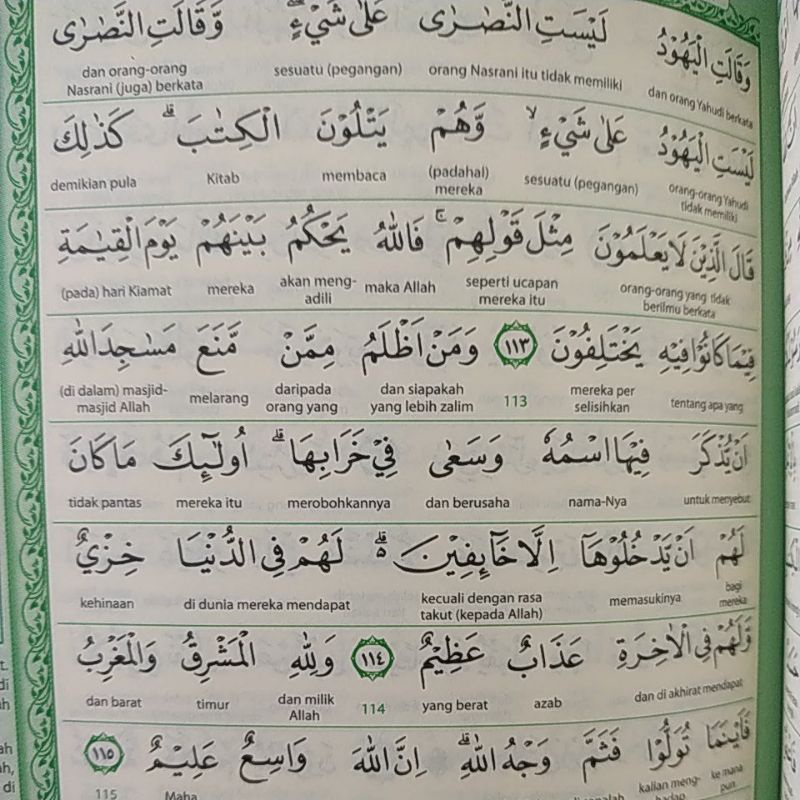 وَقَالَتِ الْيَهُوْدُ لَيْسَتِ النَّصٰرٰى عَلٰى شَيْءٍۖ وَّقَالَتِ النَّصٰرٰى
dan orang Yahudi berkata orang Nasrani itu tidak memiliki sesuatu (pegangan) dan orang-orang Nasrani (juga) berkata
لَيْسَتِ الْيَهُوْدُ عَلٰى شَيْءٍۙ وَّهُمْ يَتْلُوْنَ الْكِتٰبَۗ كَذٰلِكَ
orang-orang Yahudi tidak memiliki sesuatu (pegangan) (padahal) mereka membaca Kitab demikian pula
قَالَ الَّذِيْنَ لَا يَعْلَمُوْنَ مِثْلَ قَوْلِهِمْۚ فَاللّٰهُ يَحْكُمُ بَيْنَهُمْ يَوْمَ الْقِيٰمَةِ
orang-orang yang tidak berilmu berkata seperti ucapan mereka itu maka Allah akan meng-adili mereka (pada) hari Kiamat
فِيْمَا كَانُوْا فِيْهِ يَخْتَلِفُوْنَ ١١٣ وَمَنْ اَظْلَمُ مِمَّنْ مَّنَعَ مَسٰجِدَ اللّٰهِ
tentang apa yang mereka per selisihkan 113 dan siapakah yang lebih zalim daripada orang yang melarang (di dalam) masjid-masjid Allah
اَنْ يُّذْكَرَ فِيْهَا اسْمُهٗ وَسَعٰى فِيْ خَرَابِهَاۗ اُولٰۤىِٕكَ مَا كَانَ
untuk menyebut nama-Nya dan berusaha merobohkannya mereka itu tidak pantas
لَهُمْ اَنْ يَّدْخُلُوْهَآ اِلَّا خَاۤىِٕفِيْنَ ەۗ لَهُمْ فِى الدُّنْيَا خِزْيٌ
bagi mereka memasukinya kecuali dengan rasa takut (kepada Allah) di dunia mereka mendapat kehinaan
وَّلَهُمْ فِى الْاٰخِرَةِ عَذَابٌ عَظِيْمٌ ١١٤ وَلِلّٰهِ الْمَشْرِقُ وَالْمَغْرِبُ
dan di akhirat mendapat azab yang berat 114 dan milik Allah timur dan barat
فَاَيْنَمَا تُوَلُّوْا فَثَمَّ وَجْهُ اللّٰهِۗ اِنَّ اللّٰهَ وَاسِعٌ عَلِيْمٌ ١١٥
ke mana pun kalian meng- Maha 115